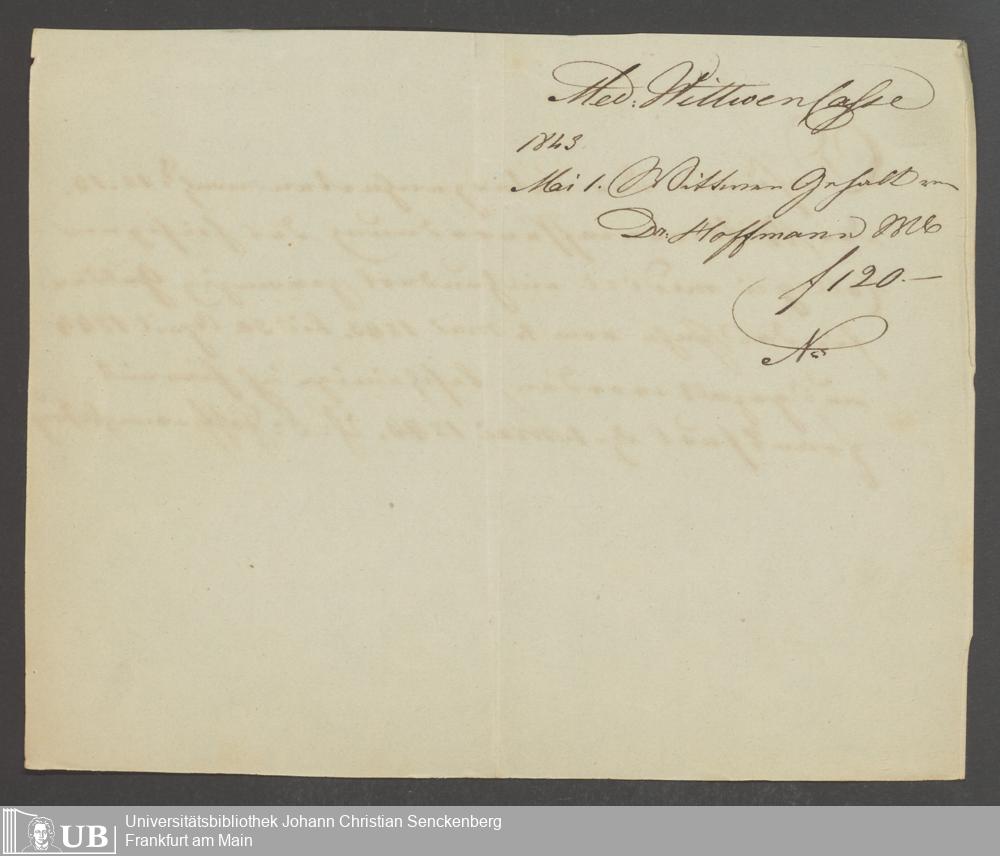 Med: Wittwen Casse
1843
Mai 1. Wittwen Gehalt von
Dr: Hoffmann
f 120.—
No
UB
Universitätsbibliothek Johann Christian Senckenberg
Frankfurt am Main